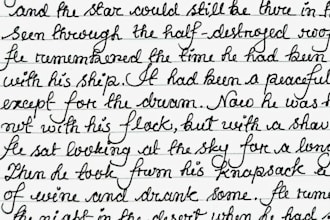 and the star could still be there in h
seen through the half-destroyed roo
He remembered the time he had been
with his ship. It had been a peaceful
except for the dream. Now he was h
not with his flock, but with a shav
He sat looking at the sky for a long
Then he took from his knapsack a
of wine and drank some. He rem
the night in the desert when he had